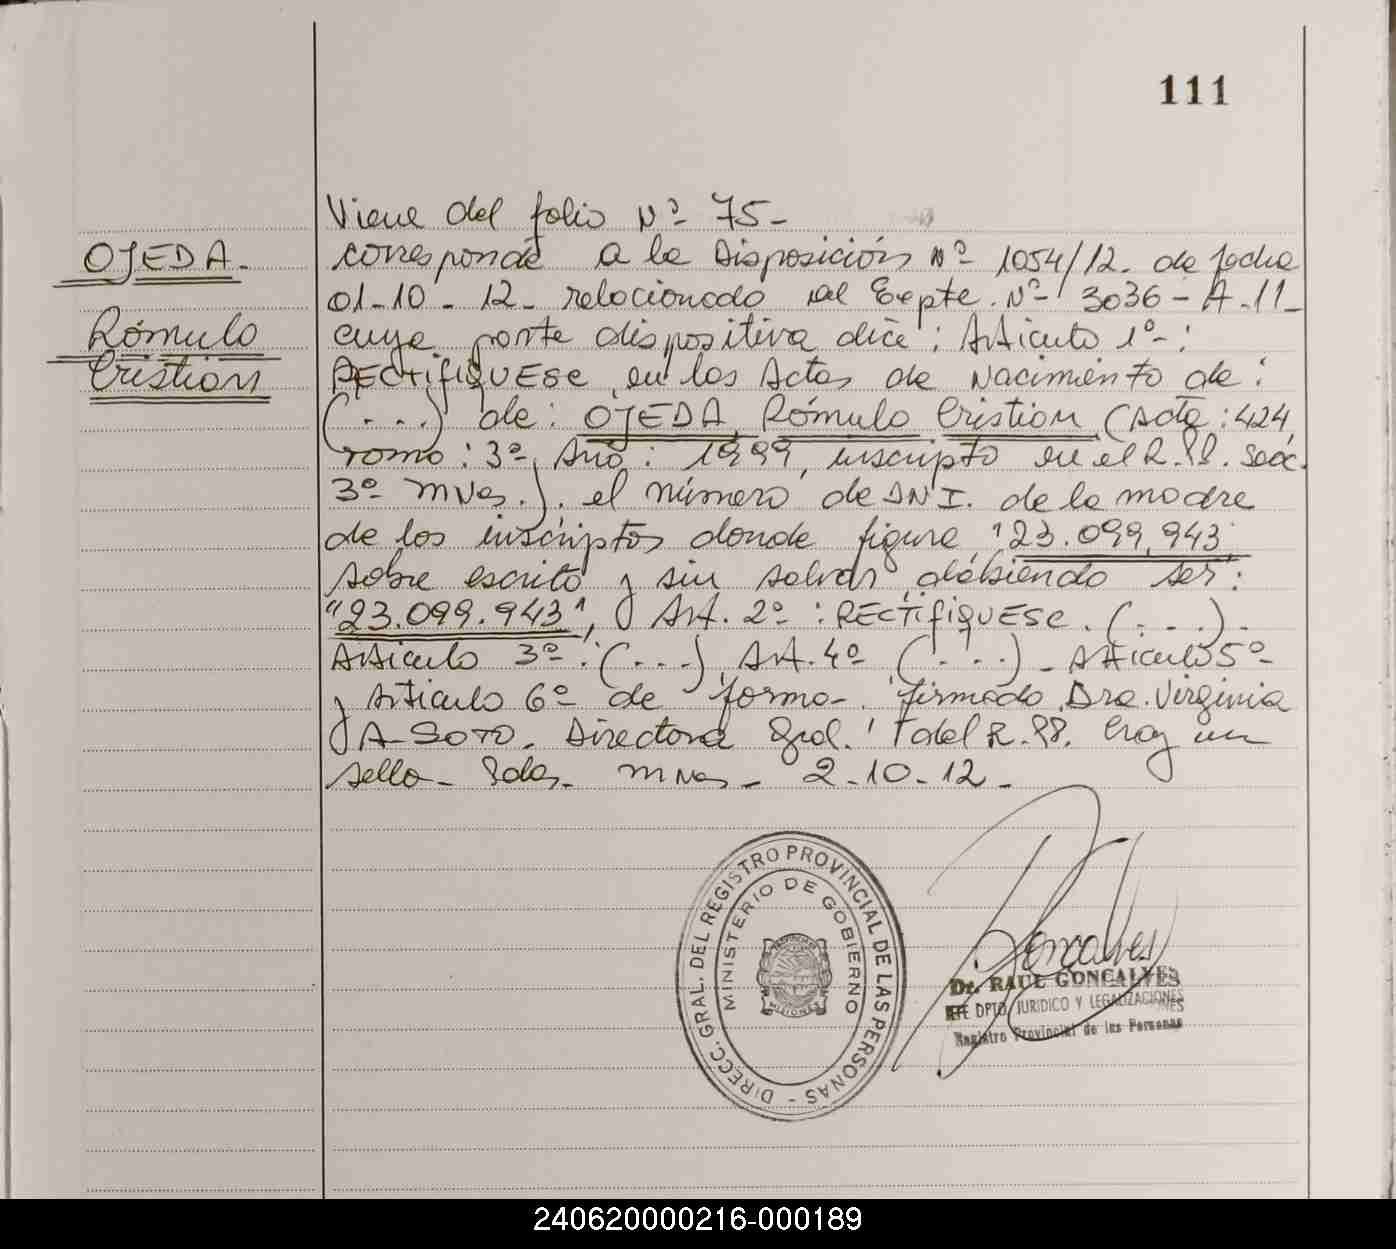 111
Viene del folio Nº 75-
OJEDA.
Rómulo
Cristian
corresponde a la Disposición Nº 1054/12. de fecha
01-10-12- relacionado al Expte. Nº 3036-A-11-
cuya parte dispositiva dice: Articulo 1º-:
RECTIFIQUESE en las Actas de Nacimiento de:
(...) de: OJEDA, Rómulo Cristian (Acta: 424,
Tomo: 3º, Año: 1999, inscripto en el R.PP. Secc.
3º- Mnes.). el número de DNI. de la madre
de los inscriptos donde figura "23.099.943"
sobre escrito y sin salvar, debiendo ser:
"23.099.943", y Art. 2º: RECTIFIQUESE. (...).
Articulo 3º: (...), Art. 4º (...)- Articulo 5º-
y Articulo 6º de forma-. firmado Dra. Virginia
A-SOTO. Directora Gral. del R.PP. Hay un
sello- Pdas. Mnes- 2-10-12-
DIRECC. GRAL. DEL REGISTRO PROVINCIAL DE LAS PERSONAS -
MINISTERIO DE GOBIERNO
MISIONES
Goncalves
Dr. RAUL GONCALVES
JEFE DPTO. JURIDICO Y LEGALIZACIONES
Registro Provincial de las Personas
240620000216-000189